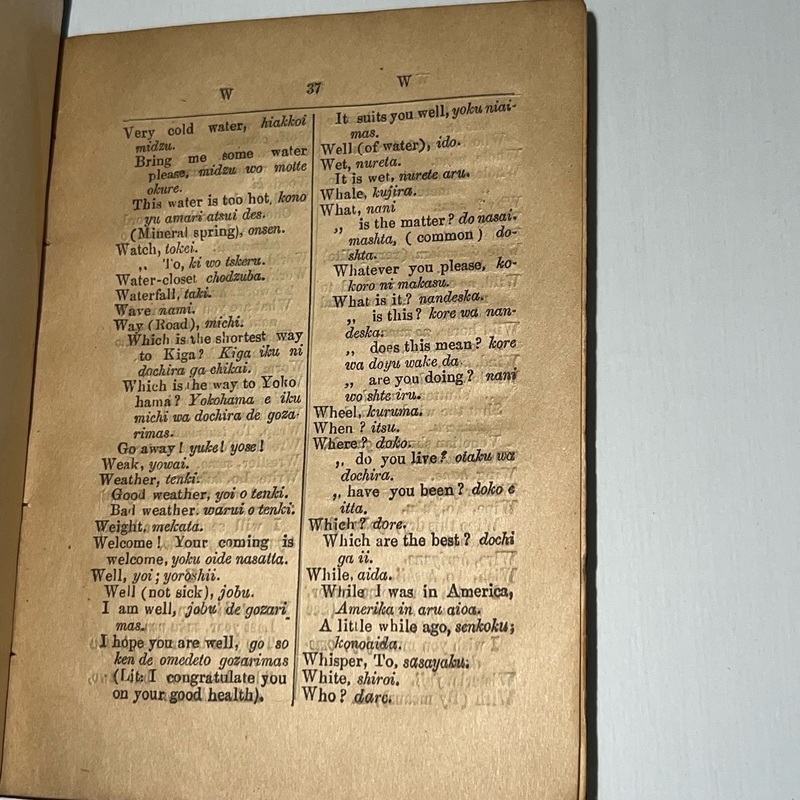 W 37 W
Very cold water, hiakkoi
midzu.
Bring me some water
please, midzu wo motte
okure.
This water is too hot, kono
yu amari atsui des.
(Mineral spring), onsen.
Watch, tokei.
„ To, ki wo tskeru.
Water-closet chodzuba.
Waterfall, taki.
Wave nami.
Way (Road), michi.
Which is the shortest way
to Kiga? Kiga iku ni
dochira ga chikai.
Which is the way to Yoko
hama? Yokohama e iku
michi wa dochira de goza-
rimas.
Go away! yuke! yose!
Weak, yowai.
Weather, tenki.
Good weather, yoi o tenki.
Bad weather. warui o tenki.
Weight, mekata.
Welcome! Your coming is
welcome, yoku oide nasatta.
Well, yoi; yoroshii.
Well (not sick), jobu.
I am well, jobu de gozari
mas.
I hope you are well, go so
ken de omedeto gozarimas
(Lit: I congratulate you
on your good health).
It suits you well, yoku niai-
mas.
Well (of water), ido.
Wet, nureta.
It is wet, nurete aru.
Whale, kujira.
What, nani
„ is the matter? do nasai.
mashta, (common) do-
shta.
Whatever you please, ko-
koro ni makasu.
What is it? nandeska.
„ is this? kore wa nan-
deska.
„ does this mean? kore
wa doyu wake da
„ are you doing? nani
wo shte iru.
Wheel, kuruma.
When? itsu.
Where? doko.
„ do you live? otaku wa
dochira.
„ have you been? doko e
itta.
Which? dore.
Which are the best? dochi
ga ii.
While, aida.
While I was in America,
Amerika in aru aioa.
A little while ago, senkoku;
konoaida.
Whisper, To, sasayaku.
White, shiroi.
Who? dare.